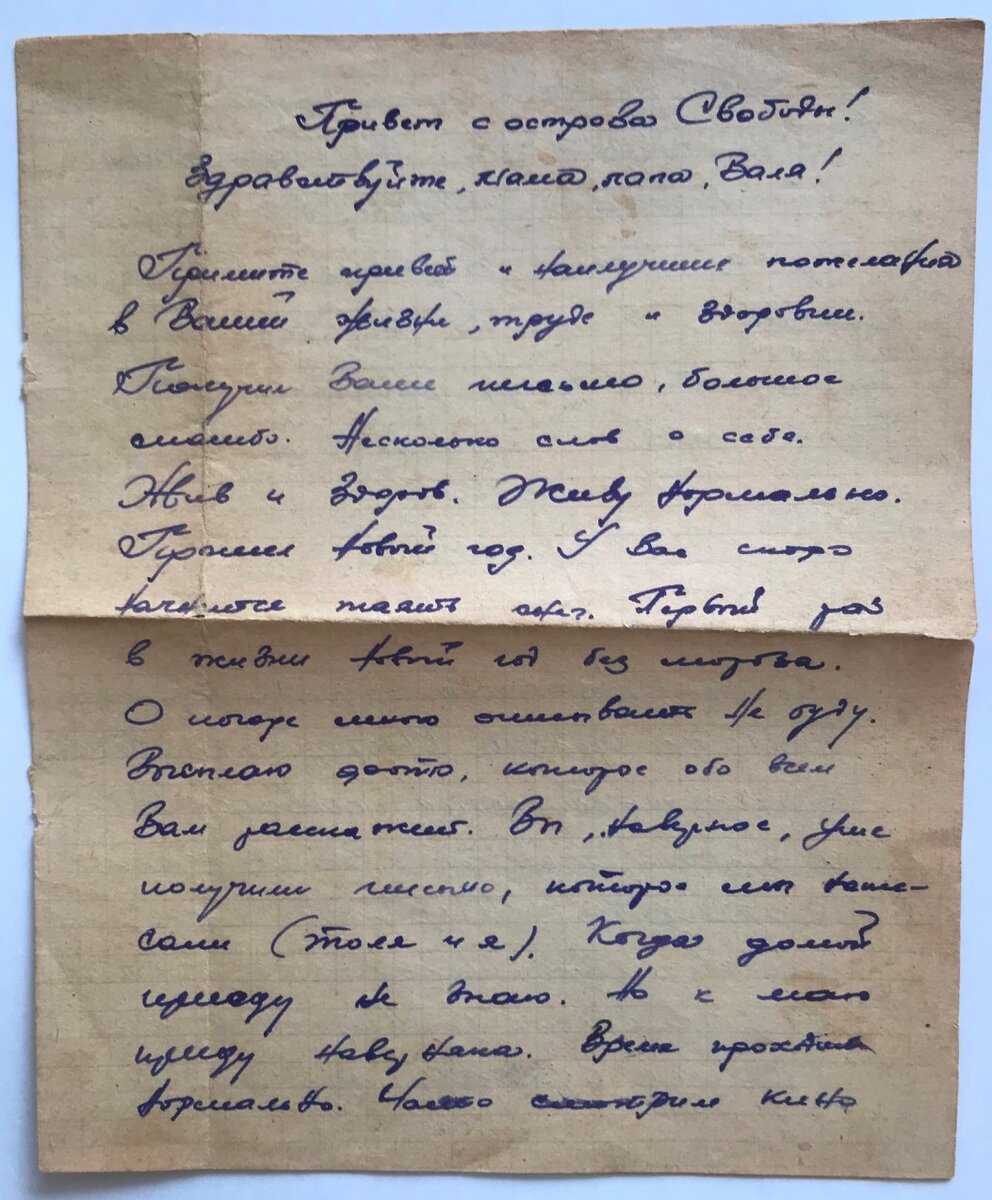 Привет с острова Свободы!
Здравствуйте, мама, папа, Валя!
Примите привет и наилучшие пожелания
в Вашей жизни, труде и здоровьи.
Получил Ваше письмо, большое
спасибо. Несколько слов о себе.
Жив и здоров. Живу нормально.
Прошел Новый год. У Вас скоро
начнется таять снег. Первый раз
в жизни Новый год без мороза.
О погоде много описывать не буду.
Высылаю фото, которое обо всем
Вам расскажет. Вы, наверное, уже
получили письмо, которое мы напи-
сали (Толя и я). Когда домой
приеду не знаю. Но к маю
приеду наверняка. Время проходит
нормально. Часто смотрим кино